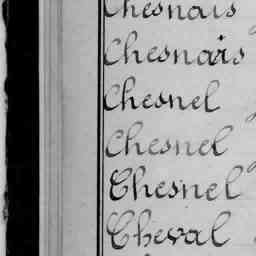 Chesnais
Chesnais
Chesnel
Chesnel
Chesnel
Cheval